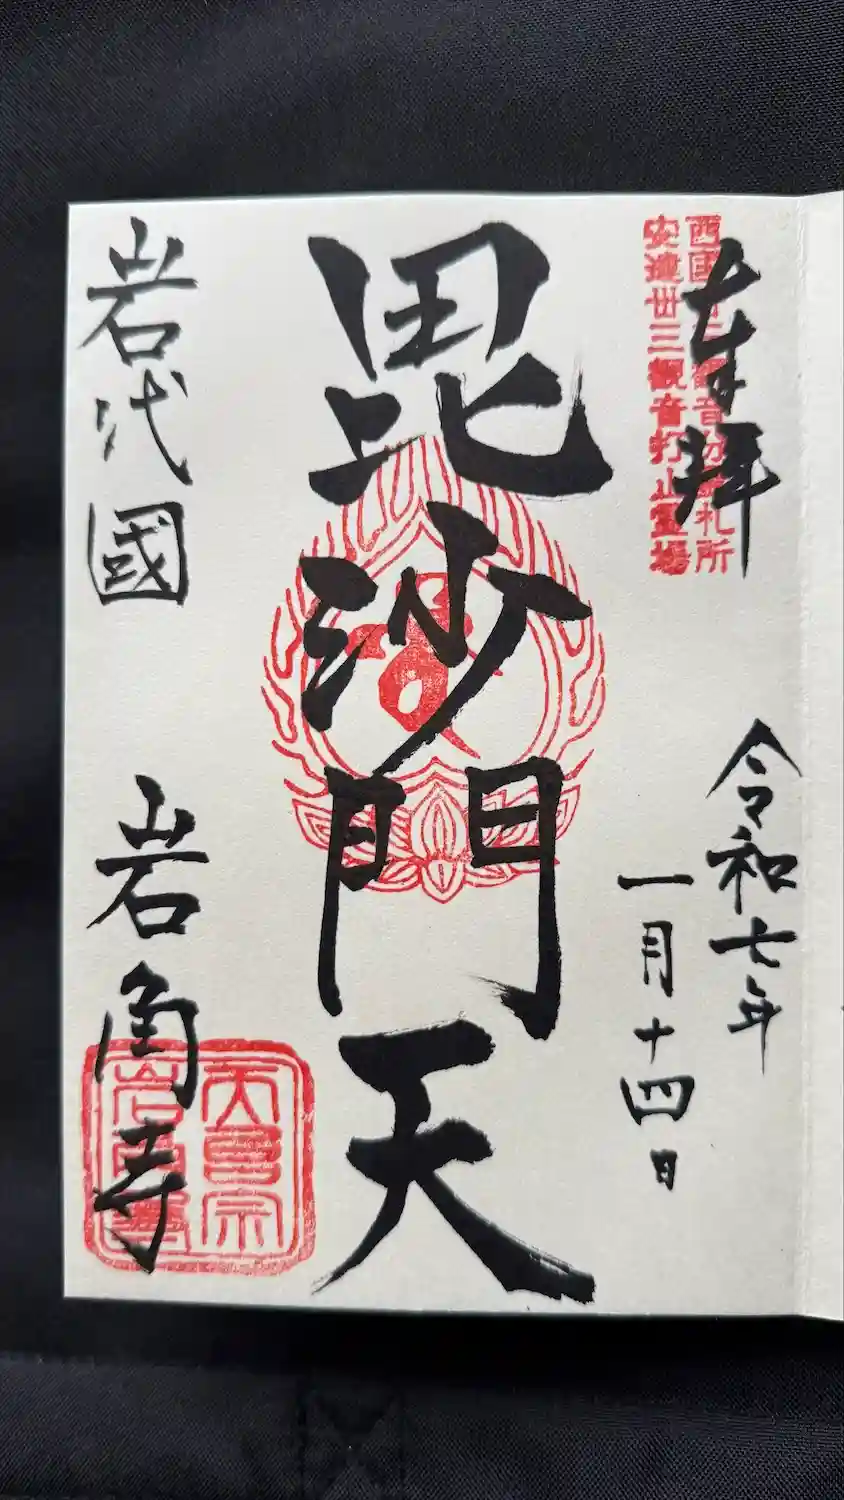 奉拝
西国卅三観音分霊札所
安達卅三観音打止霊場
令和七年
一月十四日
毘沙門天
岩代國
岩角寺
天台宗